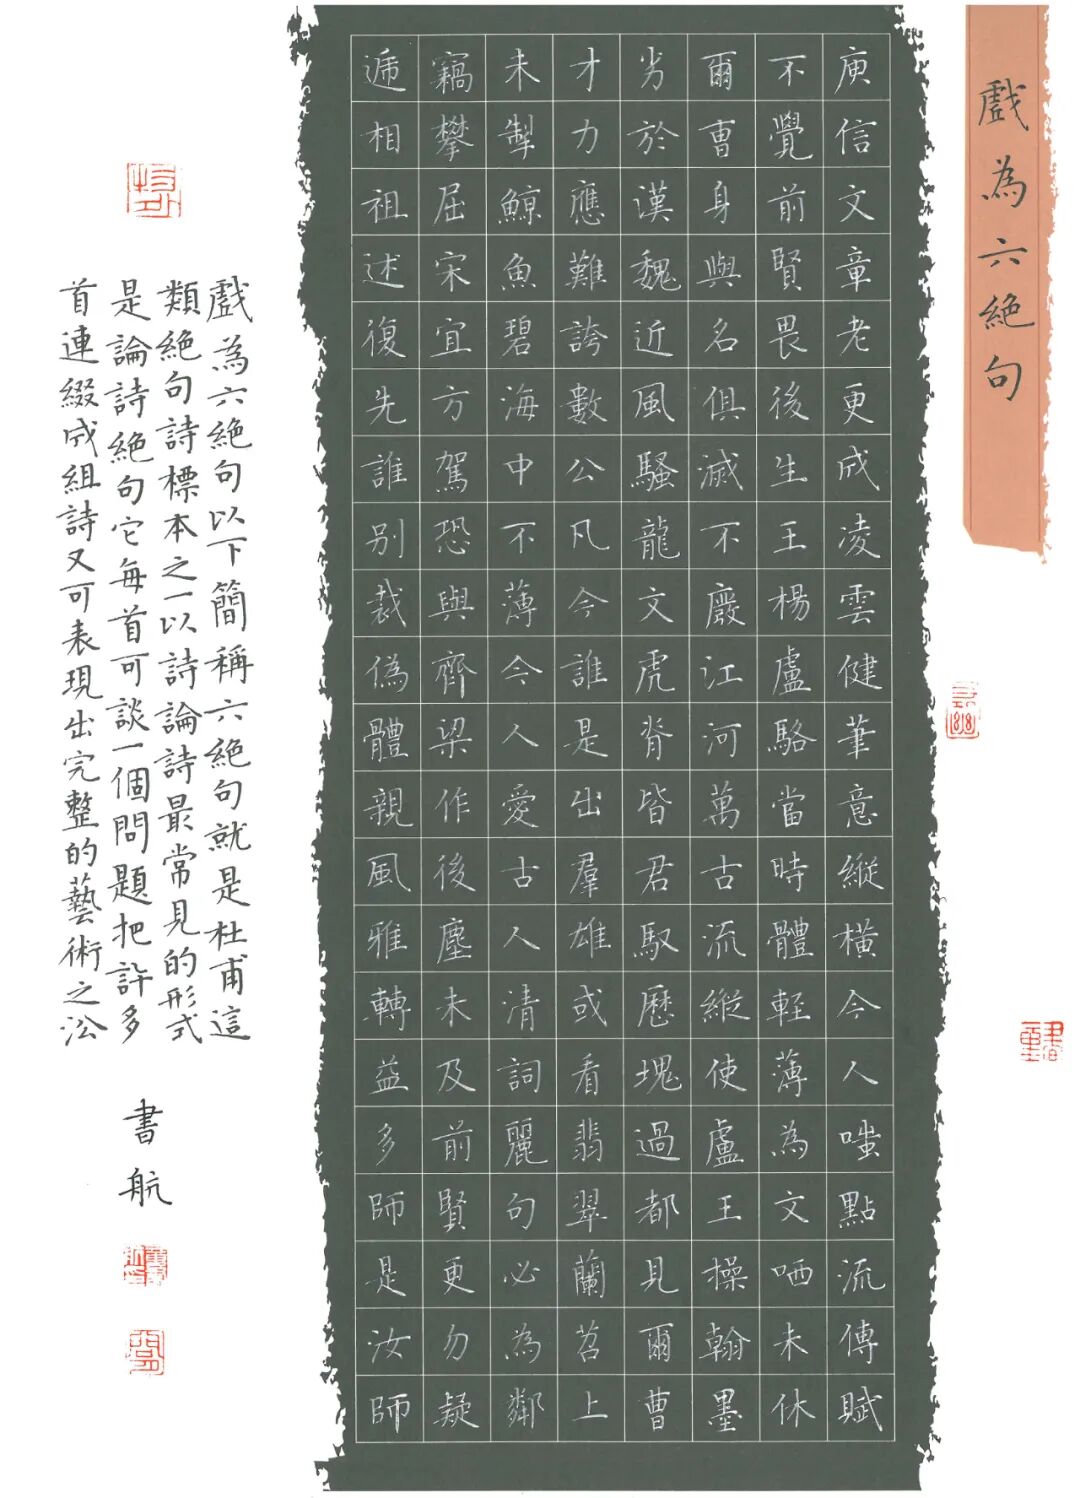 戲為六絕句
庾信文章老更成凌雲健筆意縱橫今人嗤點流傳賦
不覺前賢畏後生王楊盧駱當時體輕薄為文哂未休
爾曹身與名俱滅不廢江河萬古流縱使盧王操翰墨
劣於漢魏近風騷龍文虎脊皆君馭歷塊過都見爾曹
才力應難誇數公凡今誰是出羣雄或看翡翠蘭苕上
未掣鯨魚碧海中不薄今人愛古人清詞麗句必為鄰
竊攀屈宋宜方駕恐與齊梁作後塵未及前賢更勿疑
遞相祖述復先誰別裁偽體親風雅轉益多師是汝師
戲為六絕句以下簡稱六絕句就是杜甫這
類絕句詩標本之一以詩論詩最常見的形式
是論詩絕句它每首可談一個問題把許多
首連綴成組詩又可表現出完整的藝術之㳂
書航